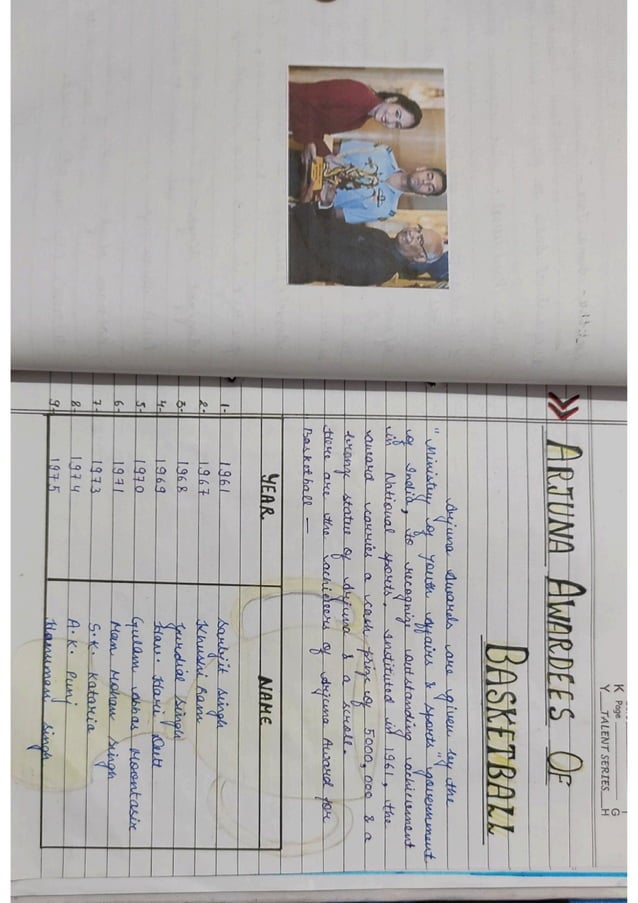 K Page G
Y TALENT SERIES H
ARJUNA AWARDEES OF
BASKETBALL
Arjuna Awards are given by the
"Ministry of Youth Affairs & Sports" government
of India, to recognize outstanding achievement
in National sports. Instituted in 1961, the
award carries a cash prize of 5000,000 & a
bronze statue of Arjuna & a scroll.
Here are the achievers of Arjuna Award for
Basketball —
YEAR NAME
1- 1961 Sarbjit Singh
2- 1967 Khushi Ram
3- 1968 Gurdial Singh
4- 1969 Hari Dutt
5- 1970 Gulam Abbas Moontasir
6- 1971 Man Mohan Singh
7- 1973 S.K. Kataria
8- 1974 A.K. Punj
9- 1975 Hanuman Singh